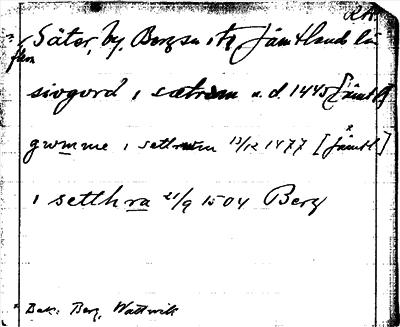 RA.
Säter, by, Bergs sn o. tg Jämtlands län
flera
siogord i sætrom u. d. 1445 [Jämtl]
gwmme i settrwm 13/12 1477 [Jämtl.]
i setthra 21/9 1504 Berg
* Bak: Berg, Wattwik